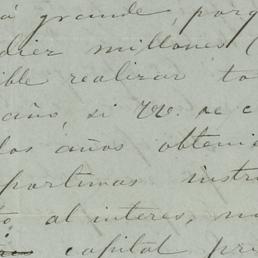 á grande, porq
drez millones (
ible realizar to
año, si VV. se c
los años obteni
portimas instr
to al interes, no
capital pri